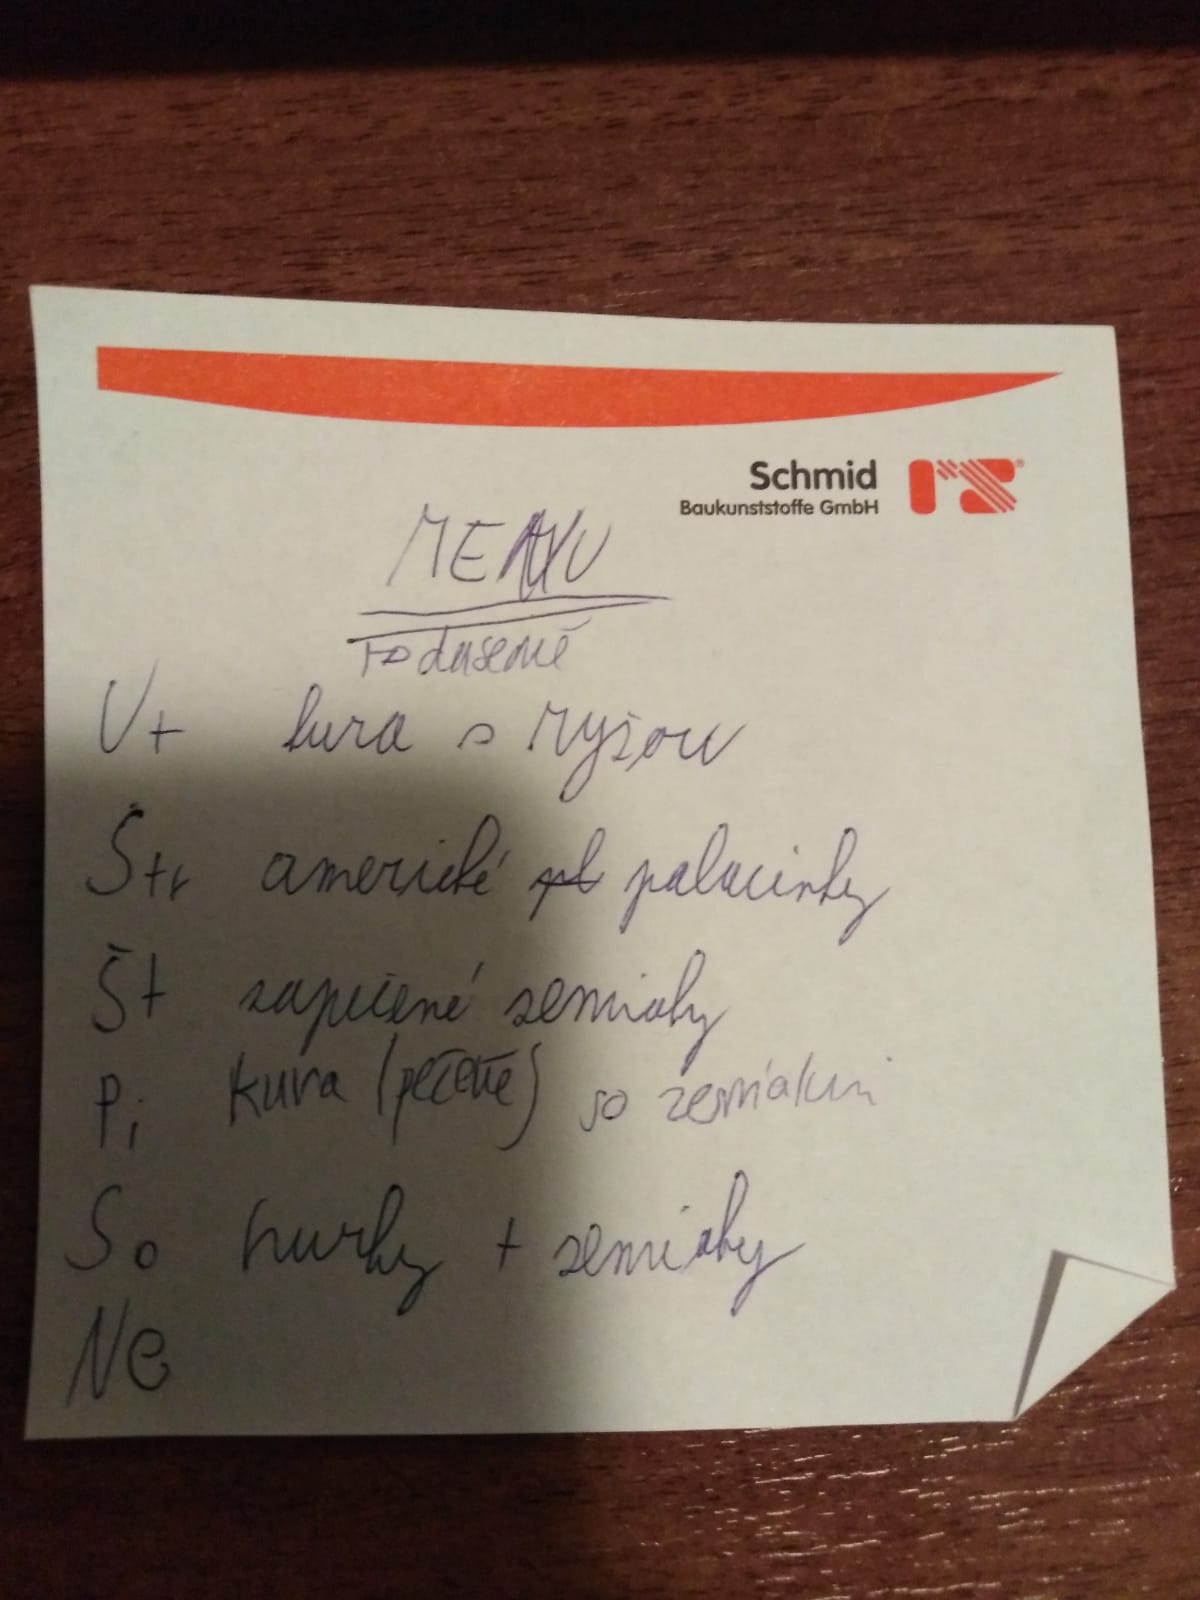 Schmid
Baukunststoffe GmbH
MENU
dusené
Ut kura s ryžou
Str americké palacinky
Št zapečené zemiaky
Pi kura (pečené) so zemiakmi
So hurky + zemiaky
Ne